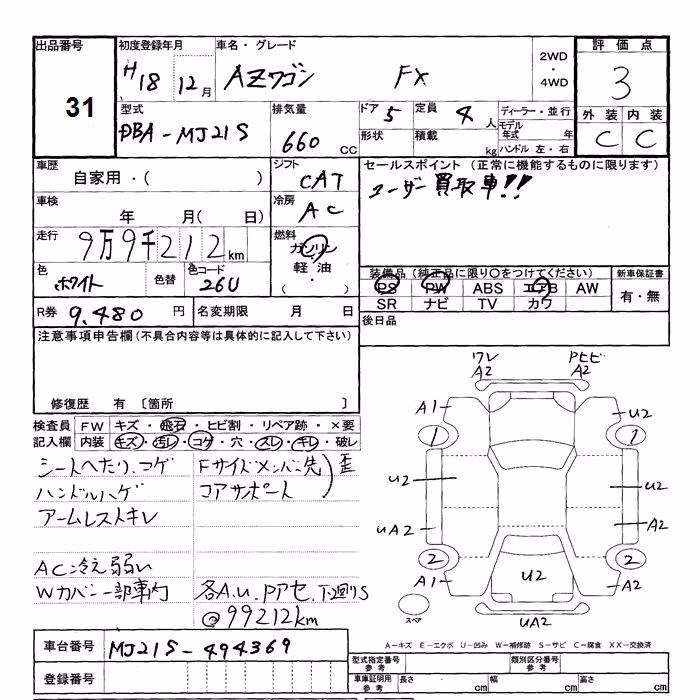 出品番号 初度登録年月 車名・グレード 2WD・4WD 評価点
31 H18 12月 AZワゴン FX 3
型式 排気量 ドア 5 定員 4人 ディーラー・並行 外装 内装
DBA-MJ21S 660 CC 形状 積載 kg モデル年式 年 C C
ハンドル 左・右
車歴 シフト セールスポイント(正常に機能するものに限ります)
自家用・( ) CAT ユーザー買取車!!
車検 冷房
年 月( 日) AC
走行 9万9千212km 燃料
ガソリン
軽油
( ・ )
色 色替 色コード 装備品(純正品に限り○をつけてください) 新車保証書
ホワイト 26U PS PW ABS エアB AW 有・無
SR ナビ TV カワ
R券 9,480円 名変期限 月 日 後日品
注意事項申告欄(不具合内容等は具体的に記入して下さい)
修復歴 有 〔箇所 〕
検査員 FW キズ・飛石・ヒビ割・リペア跡・×要
記入欄 内装 キズ・汚レ・コゲ・穴・スレ・キレ・破レ
シートヘたり、コゲ Fサイドメンバー先 歪
ハンドルハゲ コアサポート
アームレストキレ
AC冷え弱い
Wカバー一部車内 各A.U.Pアセ.下回りS
@99212km
ワレ Pヒビ
A2 A2
A1 U2
1 1
U2 U2
UA2 A2
2 2
A1 U2 A2
スペア UA2
A-キズ E-エクボ U-凹み W-補修跡 S-サビ C-腐食 XX-交換済
車台番号 MJ21S-494369 型式指定番号 参考 類別区分番号 参考
登録番号 車庫証明用 参考 長さ cm 幅 cm 高さ cm